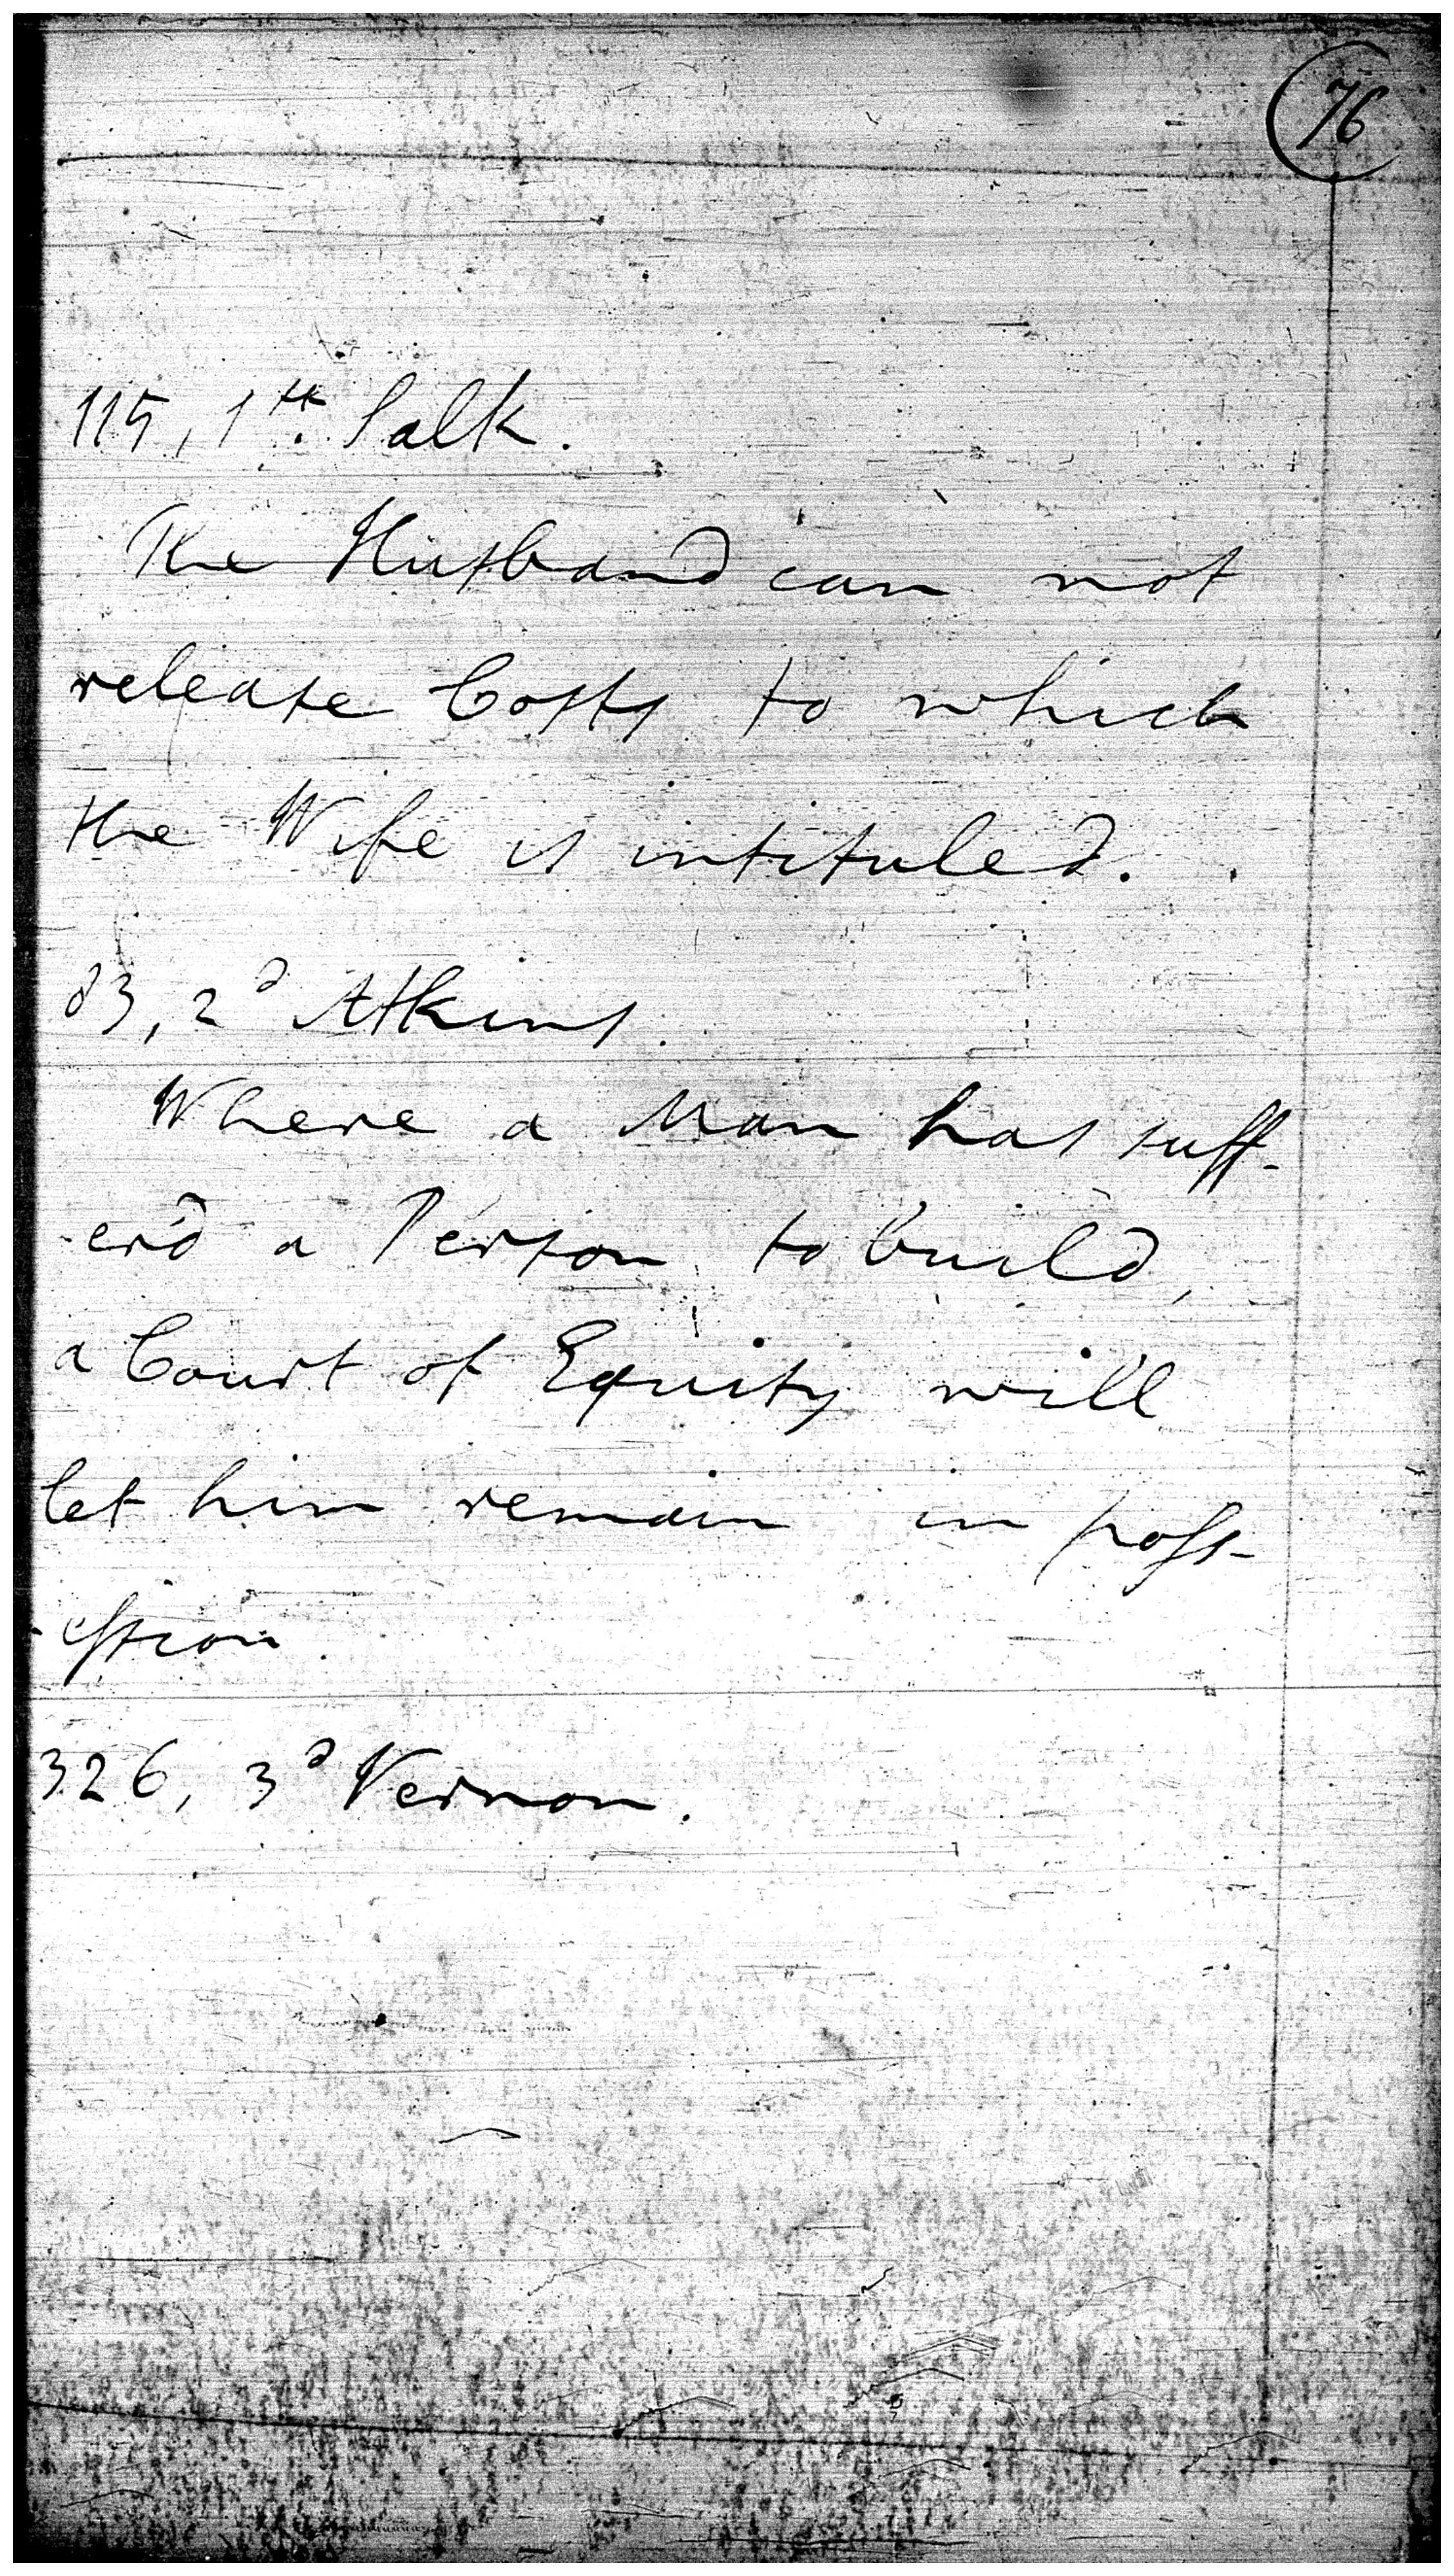 76
115, 1st. Salk.
The Husband can not
release Costs to which
the Wife is intituled.
83, 2d Atkins.
Where a Man has suff-
-er'd a Person to build,
a Court of Equity will
let him remain in poss-
-ession.
326, 3d Vernon.